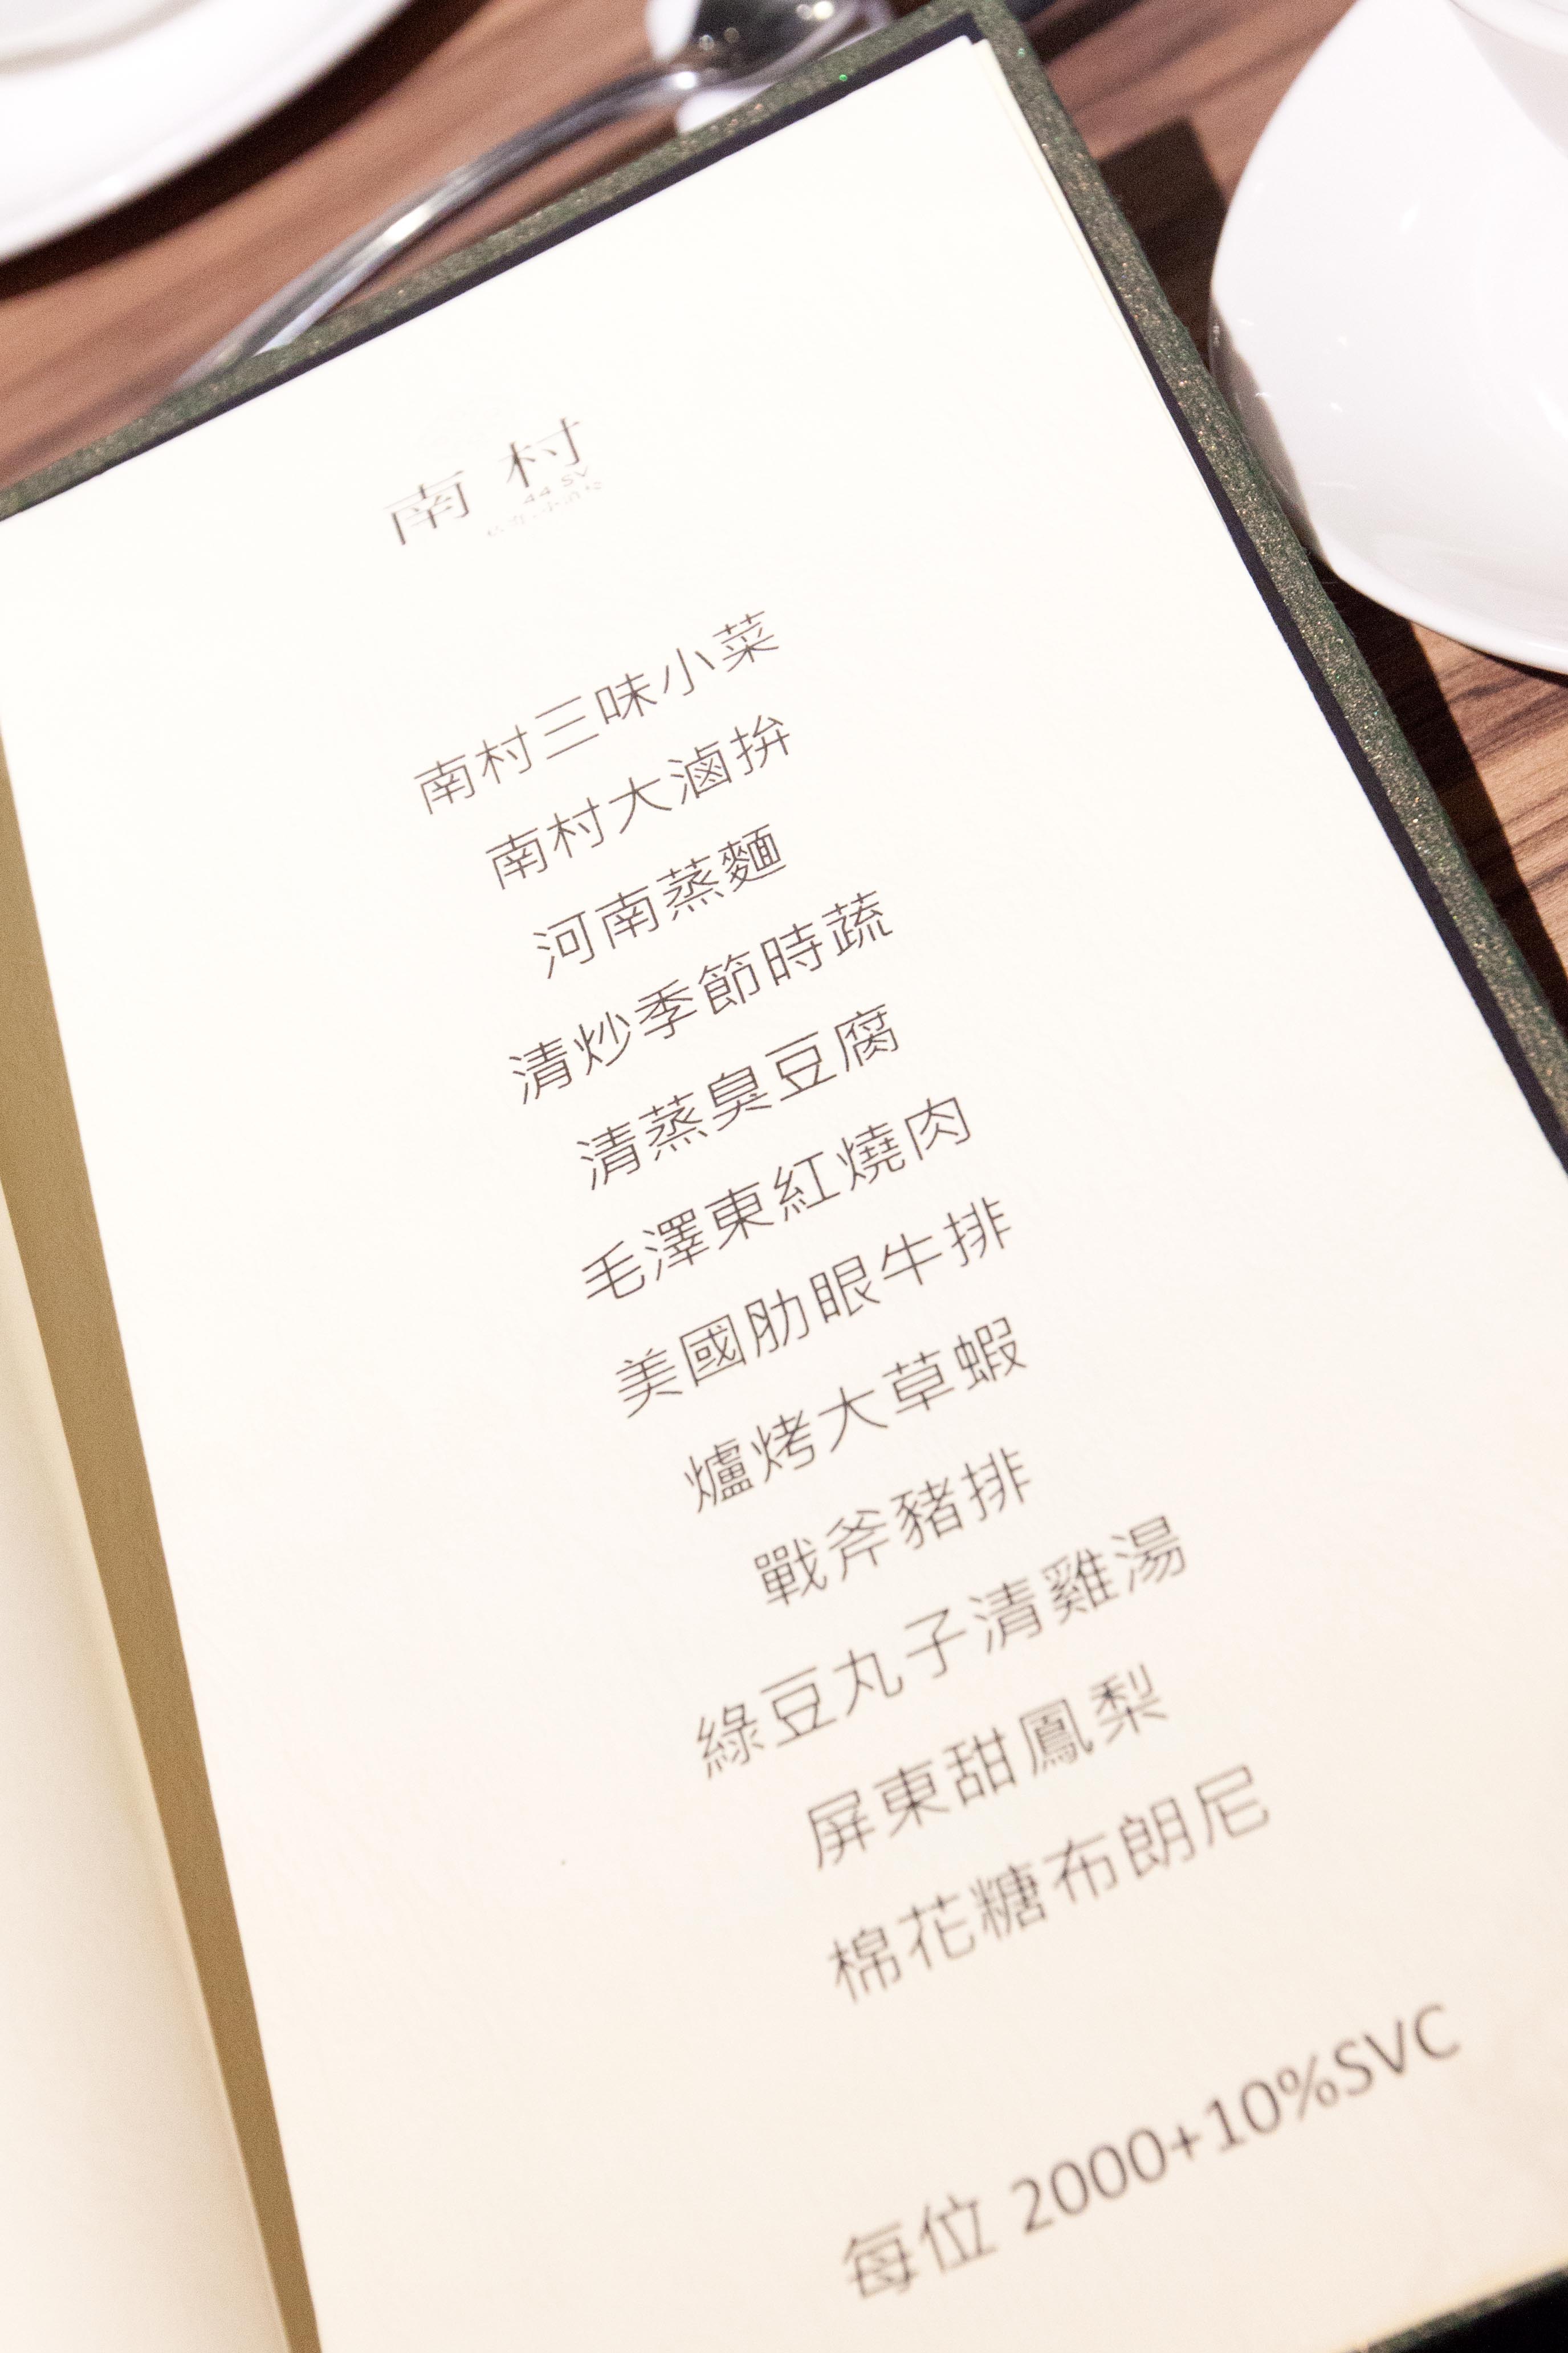 南村
44 SV
南村三味小菜
南村大滷拚
河南蒸麵
清炒季節時蔬
清蒸臭豆腐
毛澤東紅燒肉
美國肋眼牛排
爐烤大草蝦
戰斧豬排
綠豆丸子清雞湯
屏東甜鳳梨
棉花糖布朗尼
每位 2000+10%SVC